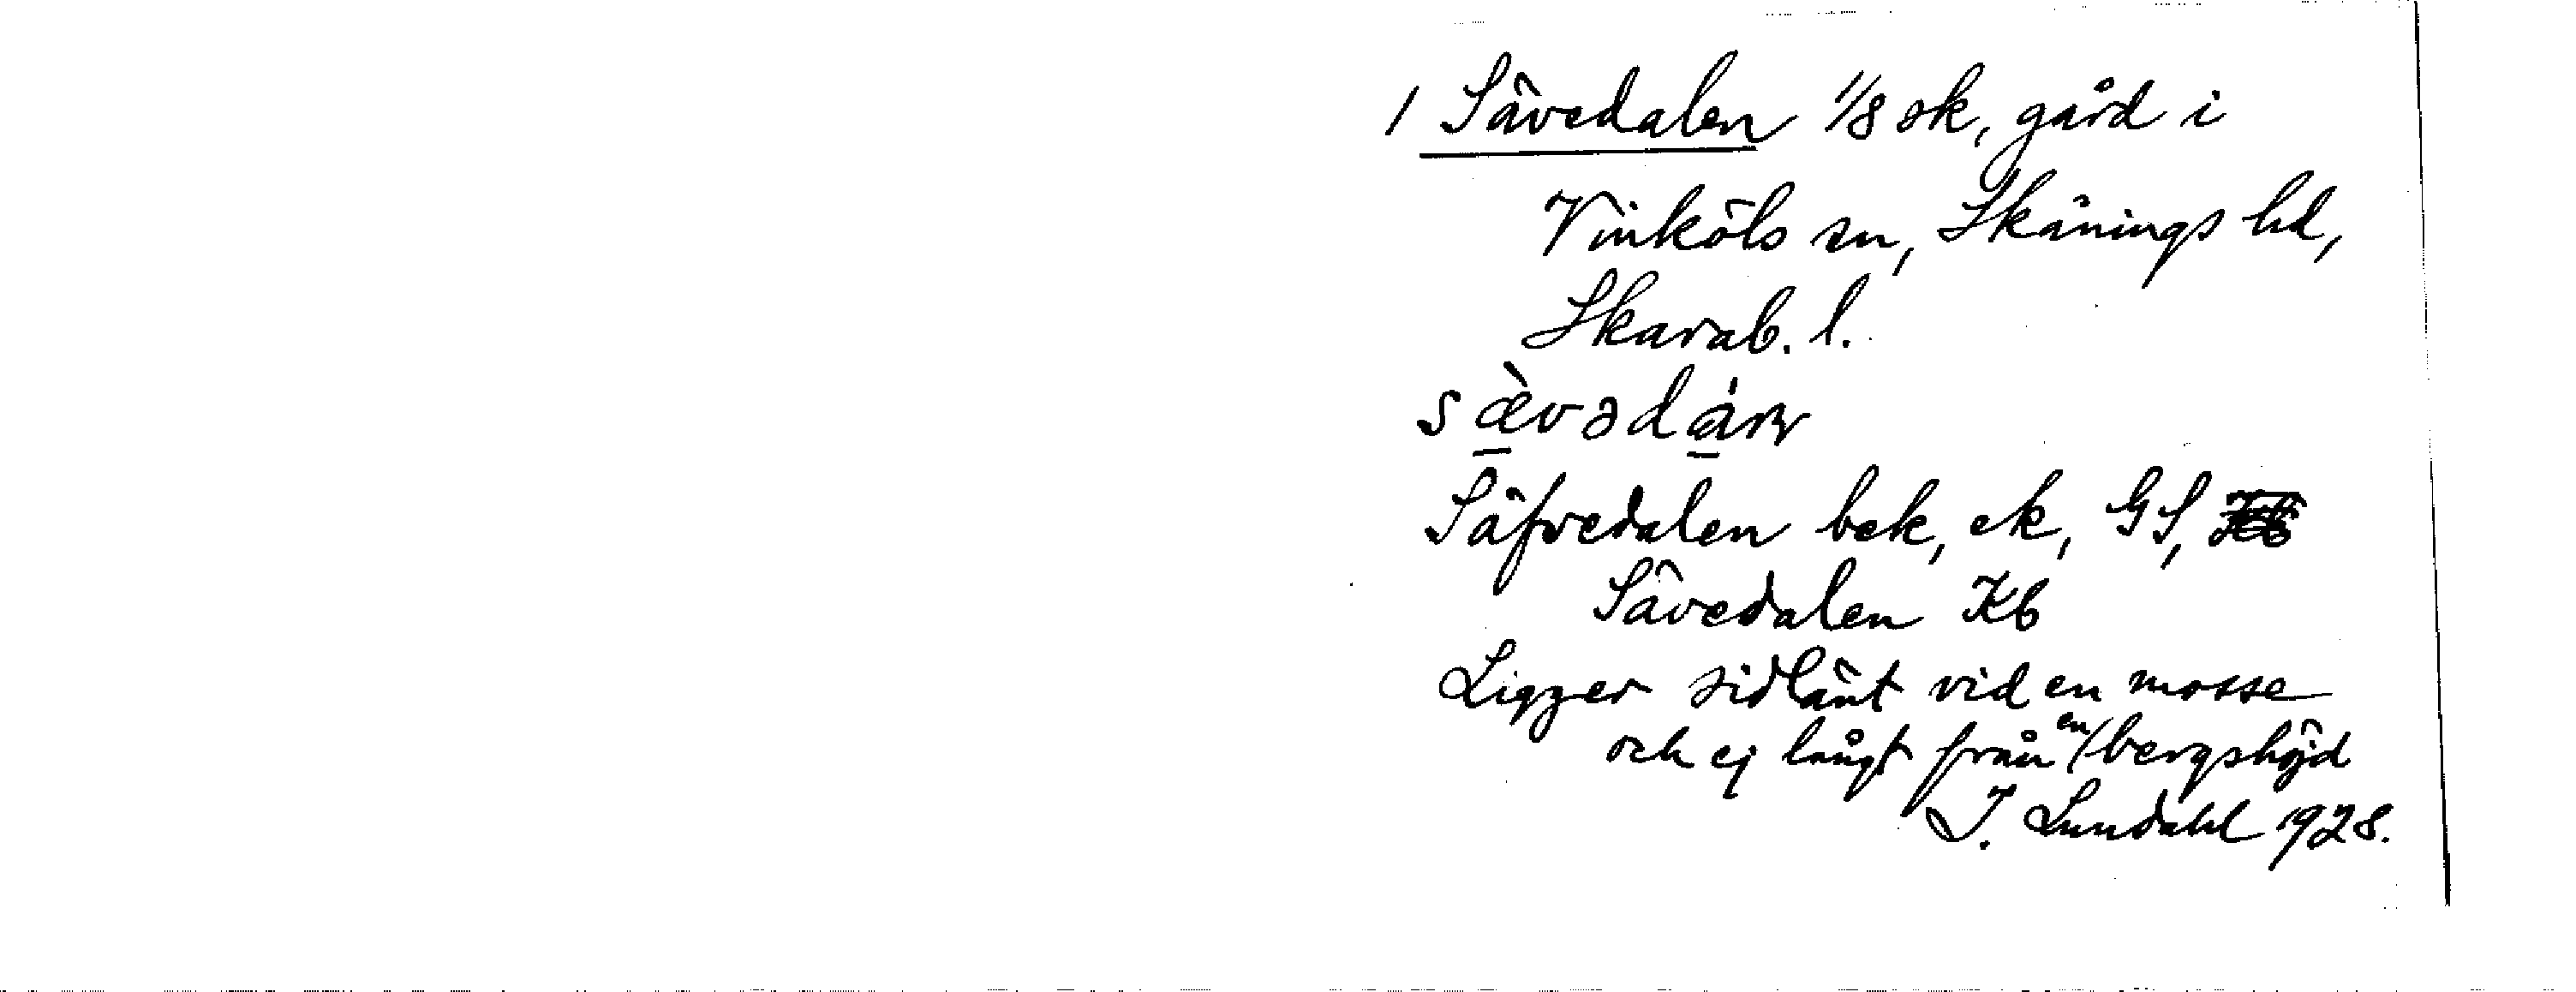 1 Sävedalen 1/8 sk, gård i
Vinköls sn, Skånings hd,
Skarab. l.
sæ̀vədáṇ
Säfvedalen bek, ek, GS,
Sävedalen Kb
Ligger sidlänt vid en mosse
och ej långt från en bergshöjd
I. Lundahl 1928.